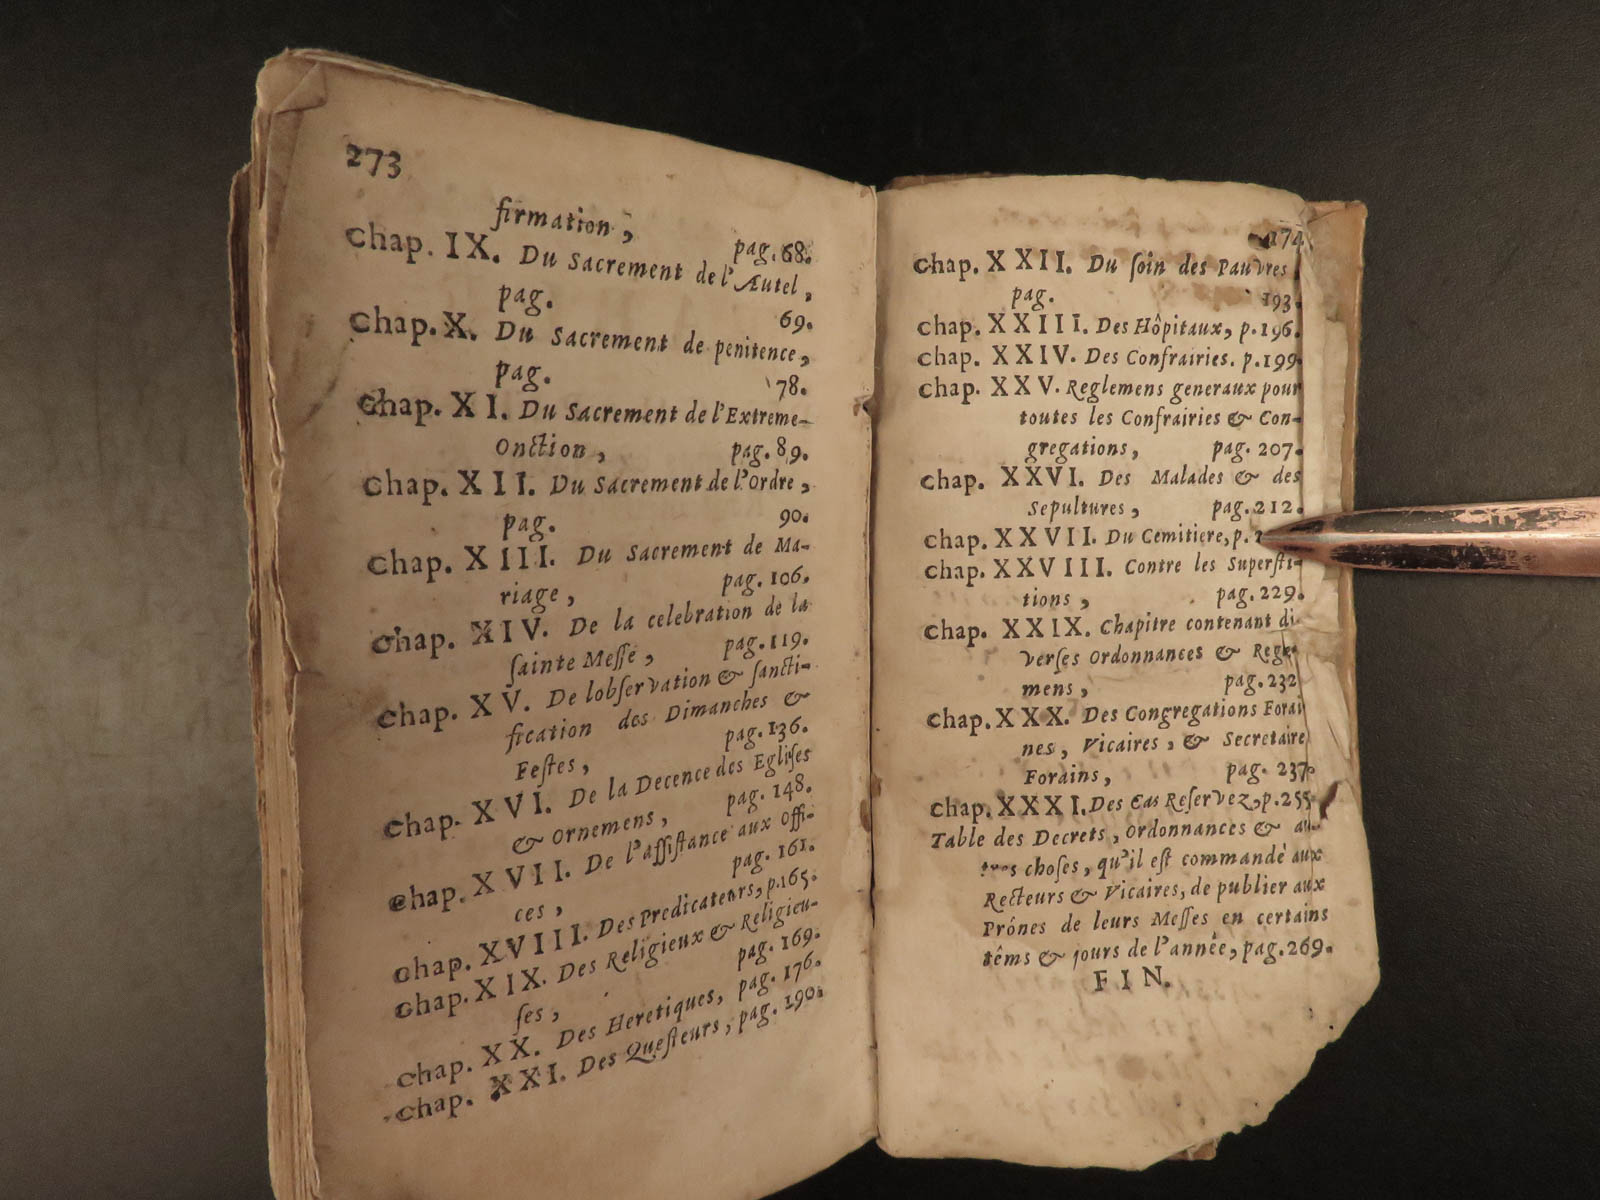 273
firmation, pag. 68.
Chap. IX. Du Sacrement de l'Autel,
pag. 69.
Chap. X. Du Sacrement de penitence,
pag. 78.
Chap. XI. Du Sacrement de l'Extreme-
Onction, pag. 89.
Chap. XII. Du Sacrement de l'Ordre,
pag. 90.
Chap. XIII. Du Sacrement de Ma-
riage, pag. 106.
Chap. XIV. De la celebration de la
sainte Messe, pag. 119.
Chap. XV. De lobservation & sancti-
fication des Dimanches &
Festes, pag. 136.
Chap. XVI. De la Decence des Eglises
& Ornemens, pag. 148.
Chap. XVII. De l'assistance aux Offi-
ces, pag. 161.
Chap. XVIII. Des Predicateurs, p.165.
Chap. XIX. Des Religieux & Religieu-
ses, pag. 169.
Chap. XX. Des Heretiques, pag. 176.
Chap. XXI. Des Questeurs, pag. 190.
274
Chap. XXII. Du soin des Pauvres
pag. 193.
Chap. XXIII. Des Hôpitaux, p. 196.
Chap. XXIV. Des Confrairies. p. 199.
Chap. XXV. Reglemens generaux pour
toutes les Confrairies & Con-
gregations, pag. 207.
Chap. XXVI. Des Malades & des
Sepultures, pag. 212.
Chap. XXVII. Du Cemitiere, p.
Chap. XXVIII. Contre les Supersti-
tions, pag. 229.
Chap. XXIX. Chapitre contenant di-
verses Ordonnances & Regle-
mens, pag. 232
Chap. XXX. Des Congregations Forai
nes, Vicaires, & Secretaire
Forains, pag. 237.
Chap. XXXI. Des Cas Reservez, p. 255
Table des Decrets, Ordonnances & au-
tres choses, qu'il est commandé aux
Recteurs & Vicaires, de publier aux
Prônes de leurs Messes en certains
têms & jours de l'année, pag. 269.
FIN.